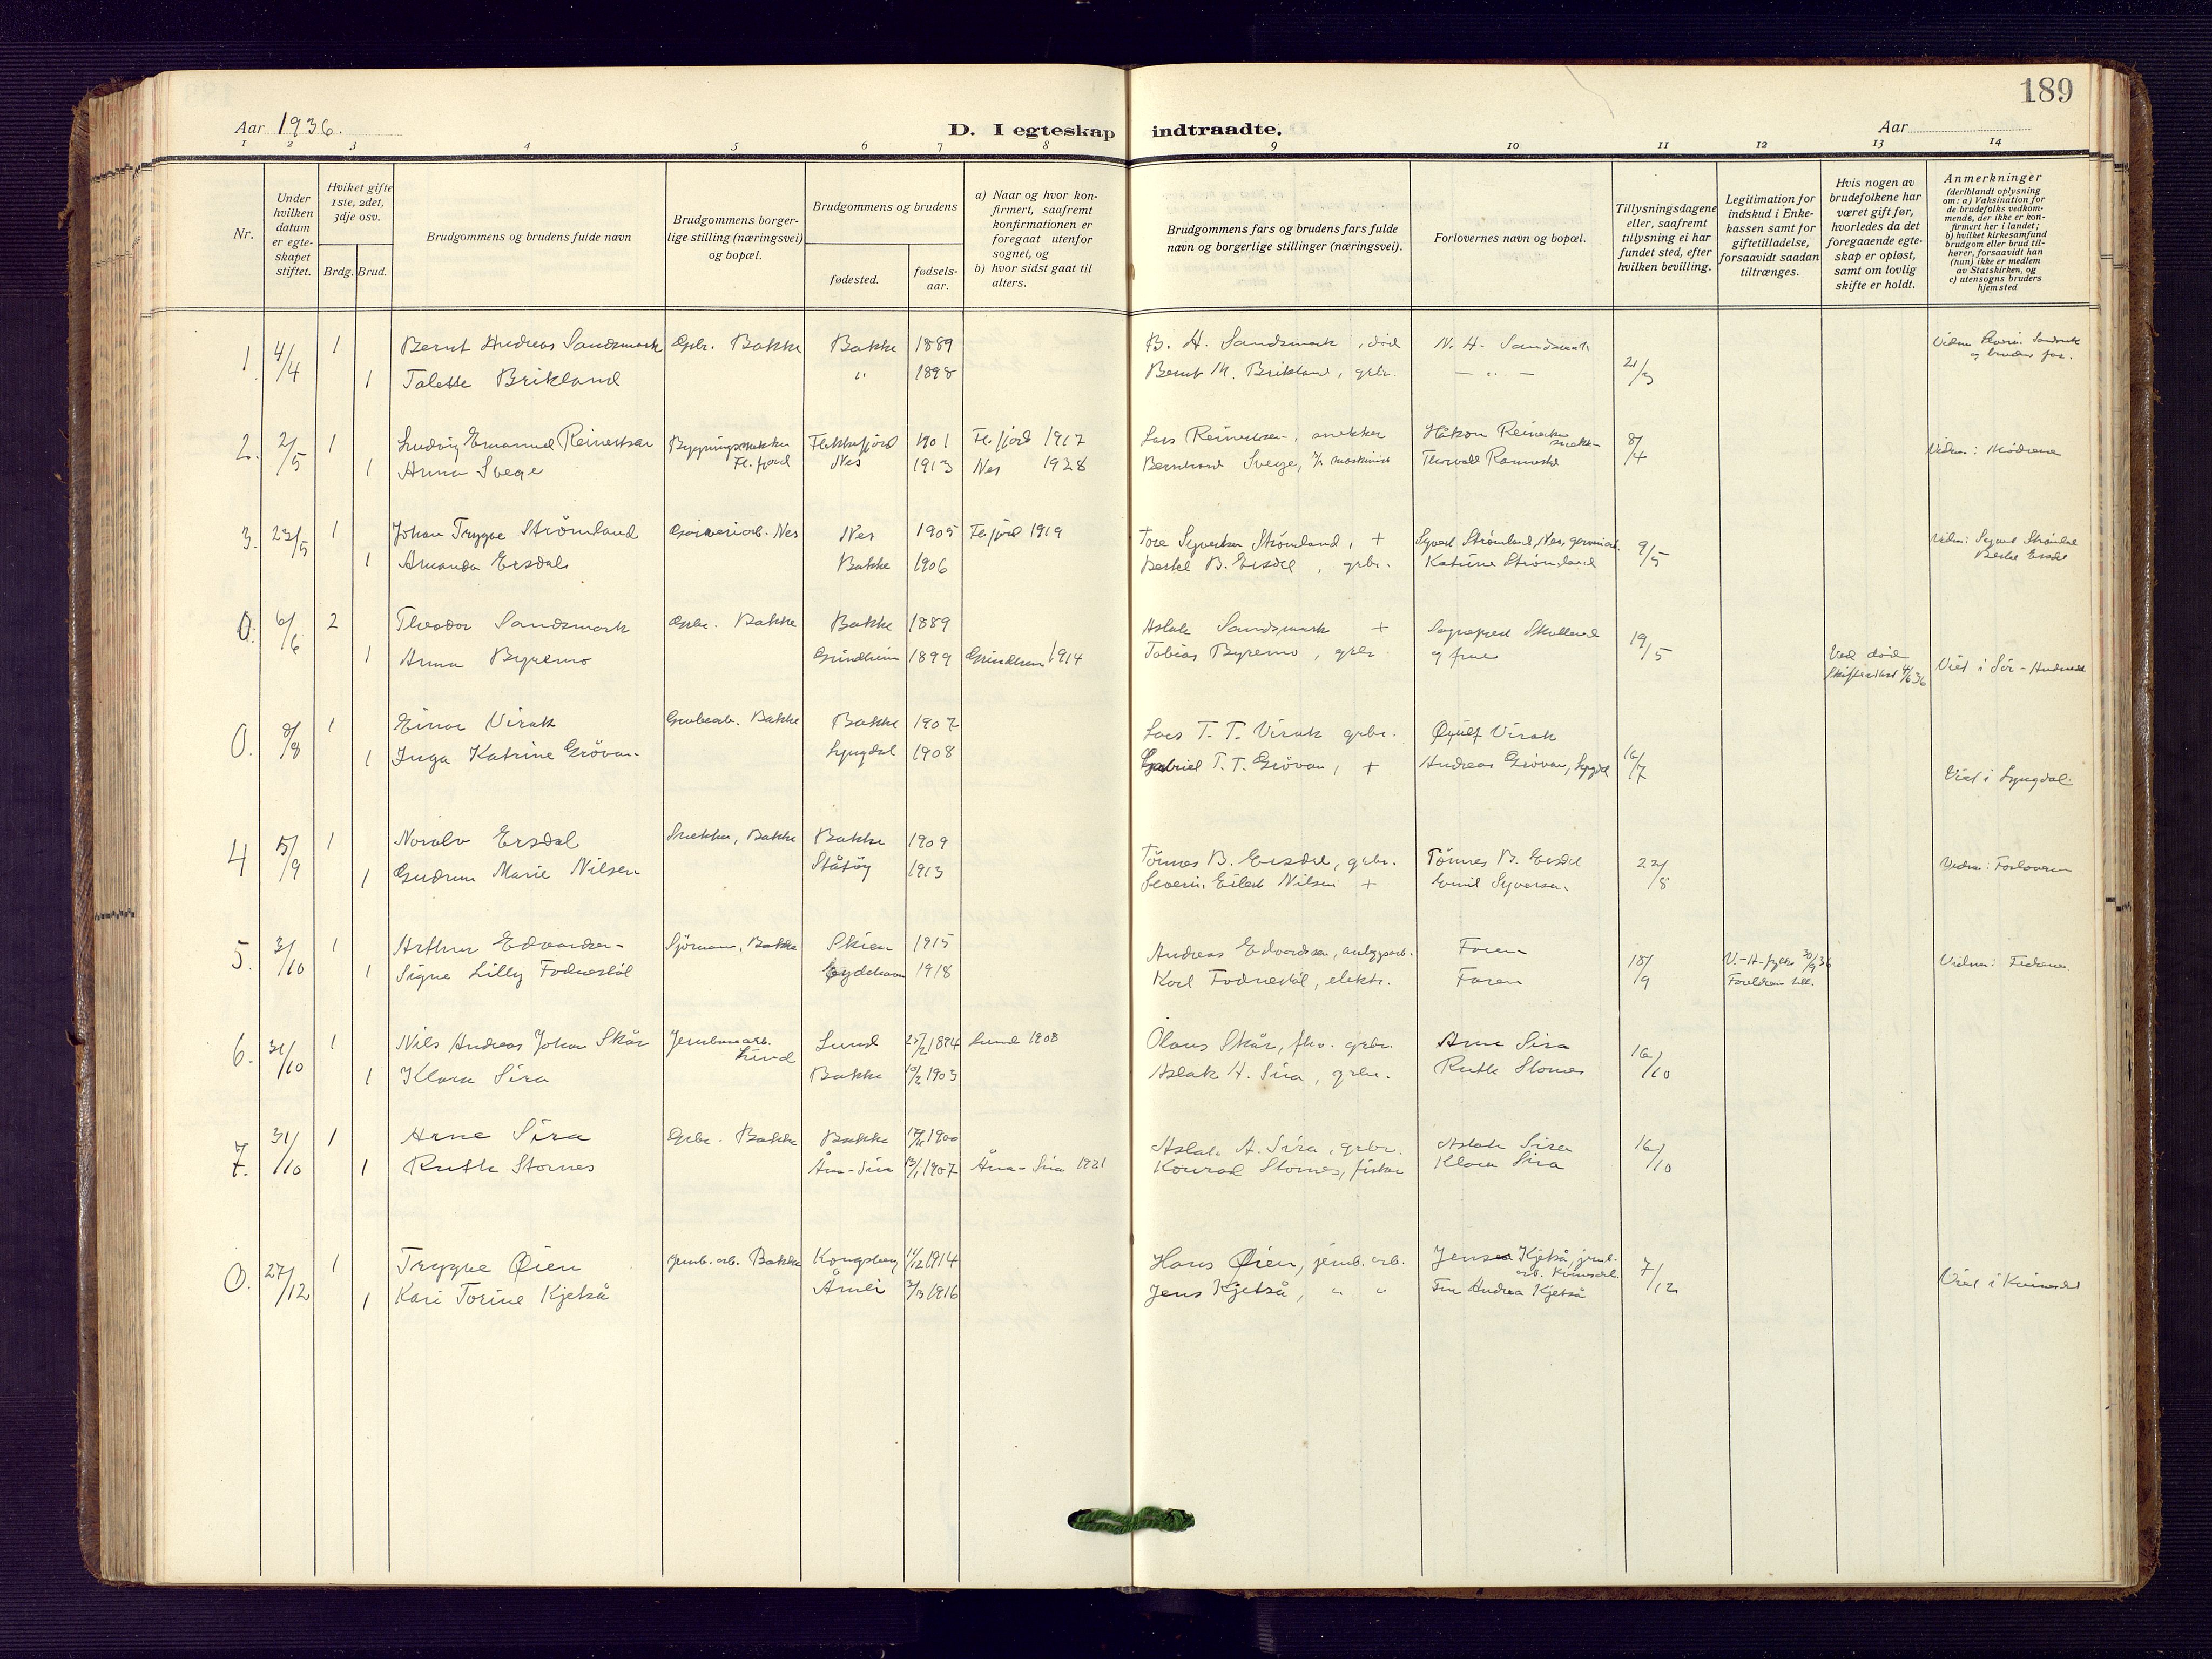 189
Aar 1936.
D. I egteskap indtraadte.
Aar
1 2 3 4 5 6 7 8 9 10 11 12 13 14
Nr.
Under hvilken datum er egteskapet stiftet.
Hviket gifte 1ste, 2det, 3dje osv.
Brdg. Brud.
Brudgommens og brudens fulde navn
Brudgommens borgerlige stilling (næringsvei) og bopæl.
Brudgommens og brudens
fødested.
fødselsaar.
a) Naar og hvor konfirmert, saafremt konfirmationen er foregaat utenfor sognet, og
b) hvor sidst gaat til alters.
Brudgommens fars og brudens fars fulde navn og borgerlige stillinger (næringsvei).
Forlovernes navn og bopæl.
Tillysningsdagene eller, saafremt tillysning ei har fundet sted, efter hvilken bevilling.
Legitimation for indskud i Enkekassen samt for giftetilladelse, forsaavidt saadan tiltrænges.
Hvis nogen av brudefolkene har været gift før, hvorledes da det foregaaende egteskap er opløst, samt om lovlig skifte er holdt.
Anmerkninger
(deriblandt oplysning om: a) Vaksination for de brudefolks vedkommende, der ikke er konfirmert her i landet;
b) hvilket kirkesamfund brudgom eller brud tilhører, forsaavidt han (hun) ikke er medlem av Statskirken, og
c) utensogns bruders hjemsted
1. 4/4 1 Bernt Andreas Sandsmark Gbr. Bakke Bakke 1889 B. A. Sandsmark, død N. H. Sandsmark 21/3
1 Talette Brikland " 1898 Bernt M. Brikland, gbr. — " —
2. 2/5 1 Ludvig Emanuel Reinertsen Bygningssnekker Fl.fjord Flekkefjord 1901 Fl.fjord 1917 Lars Reinertsen, snekker Håkon Reinertsen snekker 8/4 Vidner: Mødrene
1 Anna Svege Nes 1913 Nes 1928 Bernhard Svege, maskinist Thorvald
3. 23/5 1 Johan Trygve Strömland Garveriarb. Nes Nes 1905 Fl.fjord 1919 Tore Syvertsen Strömland, + Syvert Strømland, Nes, 9/5 Vidn: Syvert Strömland
1 Amanda Ersdal Bakke 1906 Bertel B. Ersdal, gbr. Katrine Strömland Bertel Ersdal
0. 6/6 2 Theodor Sandsmark Gbr. Bakke Bakke 1889 Aslak Sandsmark + Sogneprest 19/5
1 Anna Byremo Grindheim 1899 Grindheim 1914 Tobias Byremo, gbr. og frue Ved död Skifteattest 4/6 36 Viet i Sör-Audnedal
0. 8/8 1 Einar Virak Grubearb. Bakke Bakke 1907 Lars T. T. Virak gbr. Øyulf Virak 16/7
1 Inga Katrine Grövan Lyngdal 1908 Gabriel T. T. Grövan, + Andreas Grövan, Lyngdal Viet i Lyngdal
4 5/9 1 Norolv Ersdal Snekker, Bakke Bakke 1909 Tönnes B. Ersdal, gbr. Tönnes B. Ersdal 22/8 Vidner: Forloverne
1 Gudrun Marie Nilsen Ståtöy 1913 Severin Eilert Nilsen + Emil Syversen
5. 3/10 1 Arthur Edvardsen Sjömann, Bakke Skien 1915 Andreas Edvardsen, anlegsarb. Faren 18/9 V.-A. fylke 30/9 36 Vidner: Fedrene
1 Signe Lilly Fodnestöl Eydehavn 1918 Karl Fodnestöl, elektr. Faren Foreldrenes till.
6. 31/10 1 Nils Andreas Johan Skår Jernbanearb. Lund Lund 1894 Lund 1908 Olaus Skår, fhv. gbr. Arne Sira 16/10
1 Klara Sira Bakke 1903 Aslak A. Sira, gbr. Ruth Stornes
7. 31/10 1 Arne Sira Gbr. Bakke Bakke 1900 Aslak A. Sira, gbr. Aslak Sira 16/10
1 Ruth Stornes Åna-Sira 1907 Åna-Sira 1921 Konrad Stornes, fisker Klara Sira
0. 27/12 1 Trygve Øien Jernb. arb. Bakke Kongsberg 1914 Hans Øien, jernb. arb. Jens Kjetså, jernb. arb. Kvinesdal 7/12 Viet i Kvinesdal
1 Kari Torine Kjetså Åmli 1916 Jens Kjetså, " " Fru Andrea Kjetså